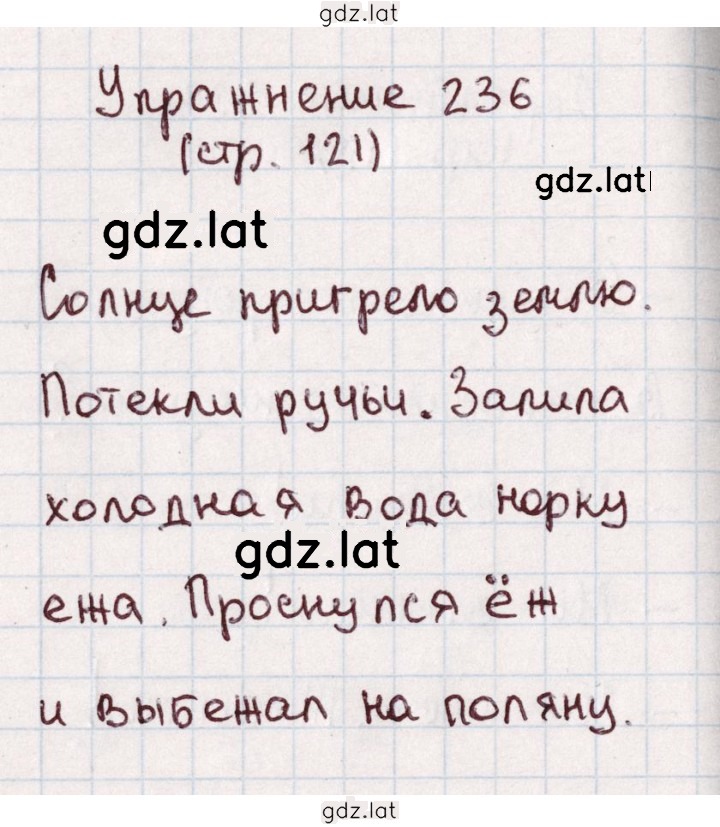 gdz.lat
Упражнение 236
(стр. 121)
gdz.lat
gdz.lat
Солнце пригрело землю.
Потекли ручьи. Залила
холодная вода норку
gdz.lat
ежа. Проснулся ёж
и выбежал на поляну.
gdz.lat